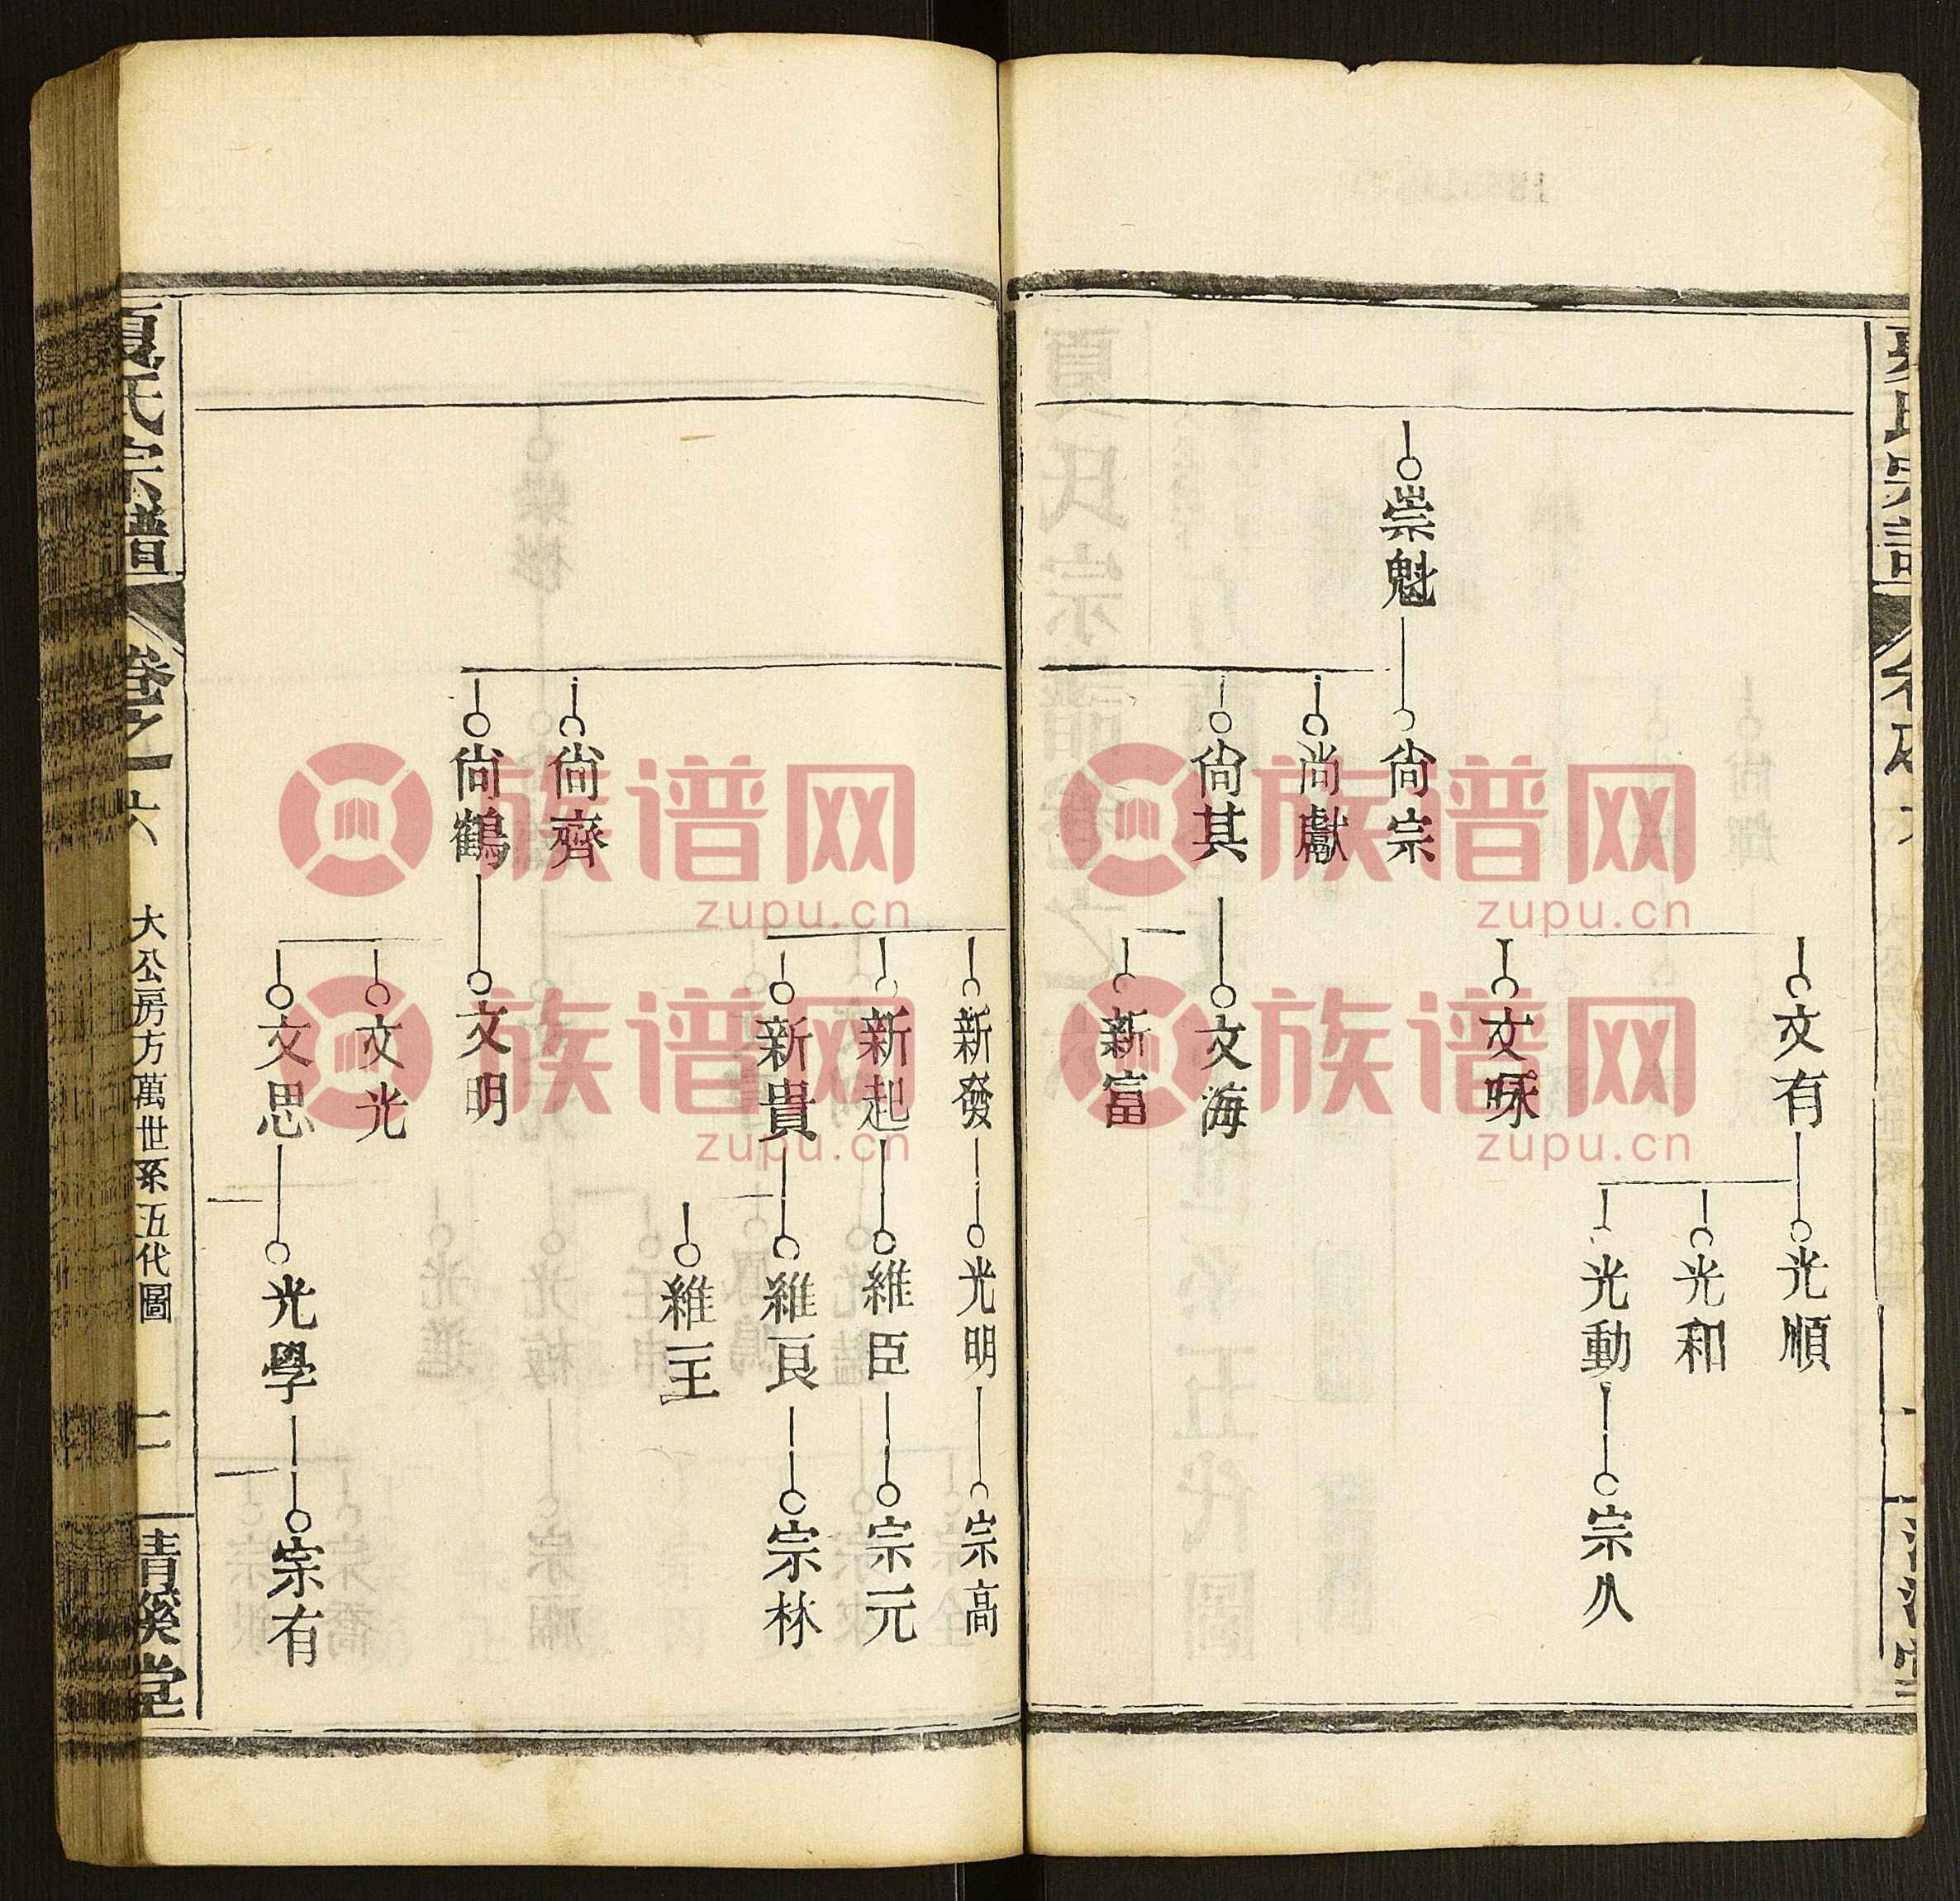 文有
光順
光和
光動
宗久
文咏
崇魁
尙宗
尙獻
尙其
文海
新富
新發
光明
宗高
新起
維臣
宗元
新貴
維良
宗林
維王
尙齊
尙鶴
文明
文光
文思
光學
宗有
夏氏宗譜
卷之一六
大公房方萬世系五代圖
二
清溪堂
族谱网
zupu.cn
族谱网
zupu.cn
族谱网
zupu.cn
族谱网
zupu.cn